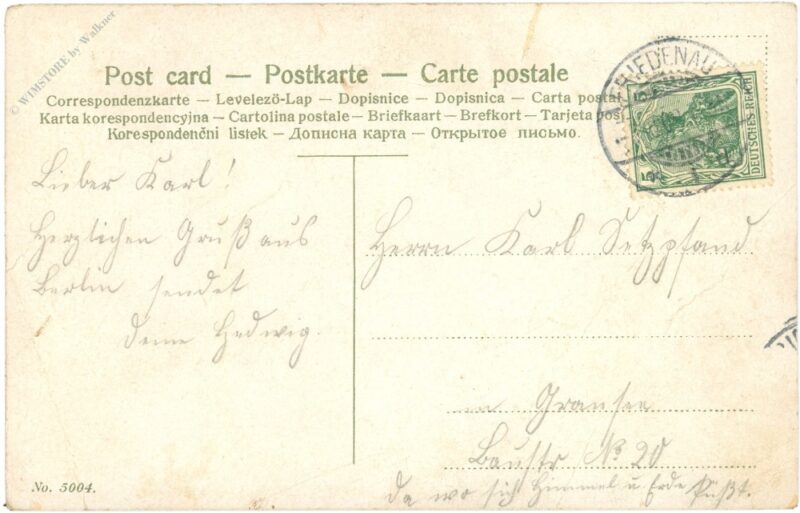 © WIMSTORE by Walkner
Post card — Postkarte — Carte postale
Correspondenzkarte — Levelező-Lap — Dopisnice — Dopisnica — Carta postal
Karta korespondencyjna — Cartolina postale — Briefkaart — Brefkort — Tarjeta pos
Korespondenční lístek — Дописна карта — Открытое письмо.
FRIEDENAU
5
DEUTSCHES REICH
Lieber Karl!
Herzlichen Gruß aus
Berlin sendet
deine Hedwig.
Herrn Karl Setzpfand
in Gransee
Baustr No 20
da wo sich Himmel u Erde küßt.
No. 5004.